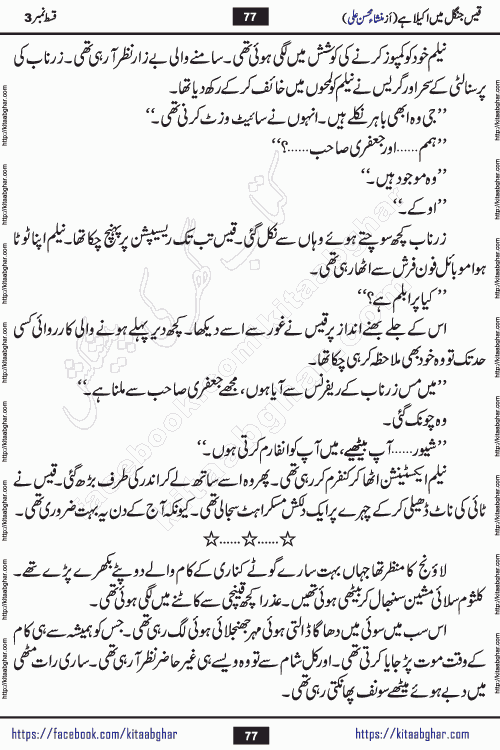 قیس جنگل میں اکیلا ہے (از منشاء محسن علی)
77
قسط نمبر 3
نیلم خود کو کمپوز کرنے کی کوشش میں لگی ہوئی تھی۔ سامنے والی بے زار نظر آ رہی تھی۔ زرناب کی
پرسنالٹی کے سحر اور گریس نے نیلم کو لمحوں میں خائف کر کے رکھ دیا تھا۔
”جی وہ ابھی باہر نکلے ہیں۔ انہوں نے سائیٹ وزٹ کرنی تھی۔“
”ہمم......اور جعفری صاحب......؟“
”وہ موجود ہیں۔“
”اوکے۔“
زرناب کچھ سوچتے ہوئے وہاں سے نکل گئی۔ قیس تب تک ریسیپشن پر پہنچ چکا تھا۔ نیلم اپنا ٹوٹا
ہوا موبائل فون فرش سے اٹھا رہی تھی۔
”کیا پرابلم ہے؟“
اس کے جلے بھنے انداز پر قیس نے غور سے اسے دیکھا۔ کچھ دیر پہلے ہونے والی کارروائی کسی
حد تک تو وہ خود بھی ملاحظہ کر ہی چکا تھا۔
”میں مس زرناب کے ریفرنس سے آیا ہوں، مجھے جعفری صاحب سے ملنا ہے۔“
وہ چونک گئی۔
”شیور......آپ بیٹھیے، میں آپ کو انفارم کرتی ہوں۔“
نیلم ایکسٹینشن اٹھا کر کنفرم کر رہی تھی۔ پھر وہ اسے ساتھ لے کر اندر کی طرف بڑھ گئی۔ قیس نے
ٹائی کی ناٹ ڈھیلی کر کے چہرے پر ایک دلکش مسکراہٹ سجالی تھی۔ کیونکہ آج کے دن یہ بہت ضروری تھی۔
☆......☆......☆
لاؤنج کا منظر تھا جہاں بہت سارے گوٹے کناری کے کام والے دوپٹے بکھرے پڑے تھے۔
کلثوم سلائی مشین سنبھال کر بیٹھی ہوئی تھیں۔ عذرا کچھ قینچی سے کاٹنے میں لگی ہوئی تھی۔
اس سب میں سوئی میں دھاگا ڈالتی ہوئی مہر جھنجلائی ہوئی لگ رہی تھی۔ جس کو ہمیشہ سے ہی کام
کے وقت موت پڑ جایا کرتی تھی۔ اور کل شام سے تو وہ ویسے ہی غیر حاضر نظر آ رہی تھی۔ ساری رات مٹھی
میں دبے ہوئے میٹھے سونف پھانکتی رہی تھی۔
https://facebook.com/kitaabghar
77
https://kitaabghar.com
http://kitaabghar.com